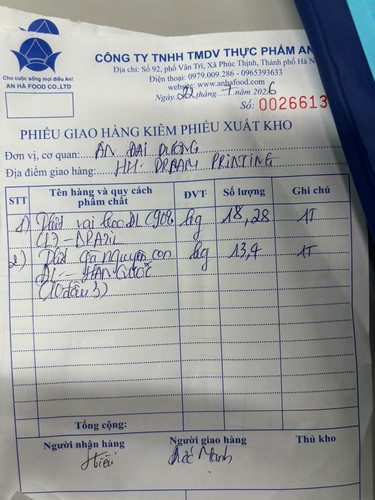 Cho cuộc sống mọi điều An!
AN HÀ FOOD CO.,LTD
CÔNG TY TNHH TMDV THỰC PHẨM AN
Địa chỉ: Số 92, phố Vân Trì, Xã Phúc Thịnh, Thành phố Hà N
Điện thoại: 0979.009.286 - 0965393633
website: www.anhafood.com
Ngày 22 tháng 1 năm 2026
Số: 0026613
PHIẾU GIAO HÀNG KIÊM PHIẾU XUẤT KHO
Đơn vị, cơ quan: AN ĐẠI DƯƠNG
Địa điểm giao hàng: HM: DREAM PRINTING
STT Tên hàng và quy cách phẩm chất ĐVT Số lượng Ghi chú
1) Thịt vai heo ĐL (90% kg 18,28 1T
- BRAZIL
2) Thịt gà nguyên con kg 13,4 1T
ĐL - HÀN QUỐC
(10 đầu
Tổng cộng:
Người nhận hàng Người giao hàng Thủ kho
Hiếu Mạnh